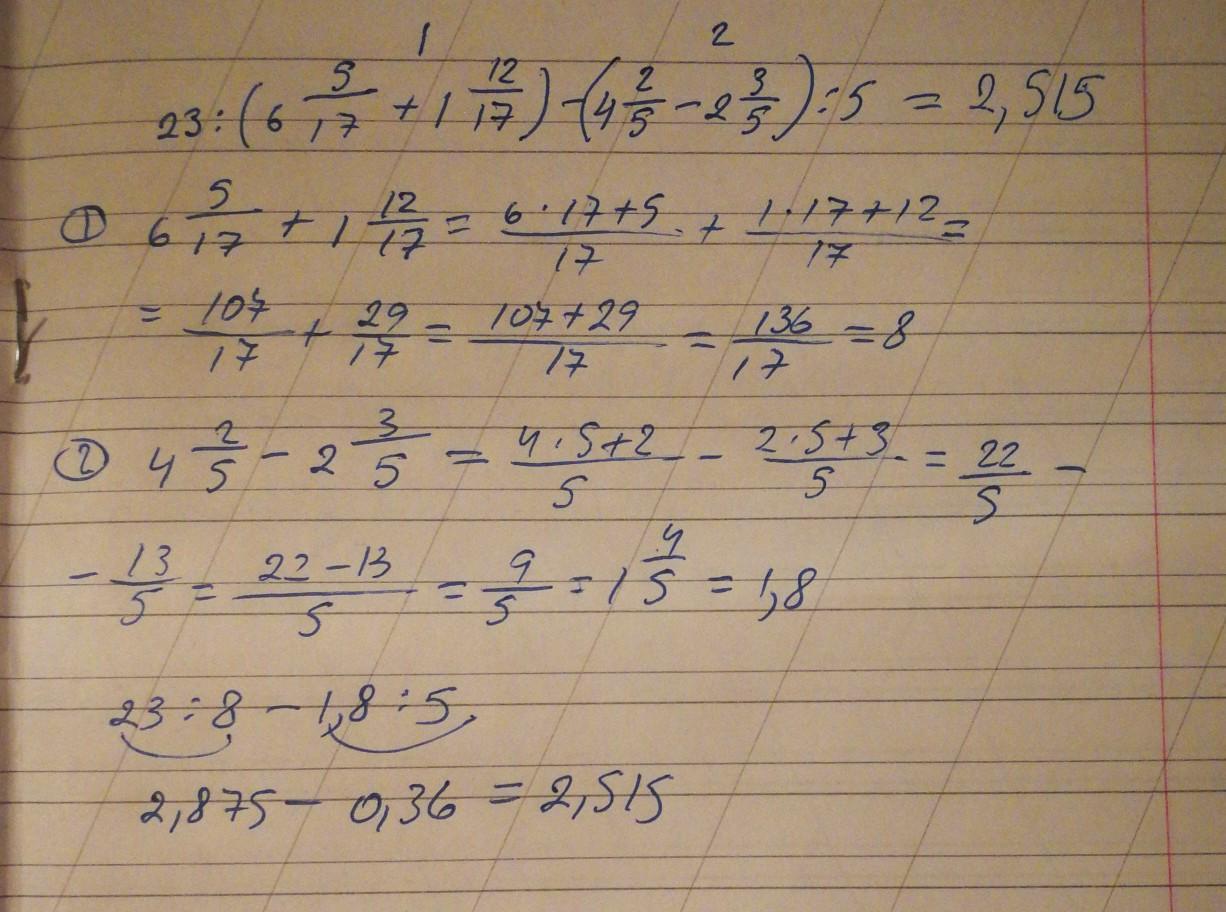 1 2
23:(6 5/17 + 1 12/17) - (4 2/5 - 2 3/5) : 5 = 2,515
① 6 5/17 + 1 12/17 = (6·17+5)/17 + (1·17+12)/17 =
= 107/17 + 29/17 = (107+29)/17 = 136/17 = 8
② 4 2/5 - 2 3/5 = (4·5+2)/5 - (2·5+3)/5 = 22/5 -
- 13/5 = (22-13)/5 = 9/5 = 1 4/5 = 1,8
23 : 8 - 1,8 : 5
2,875 - 0,36 = 2,515